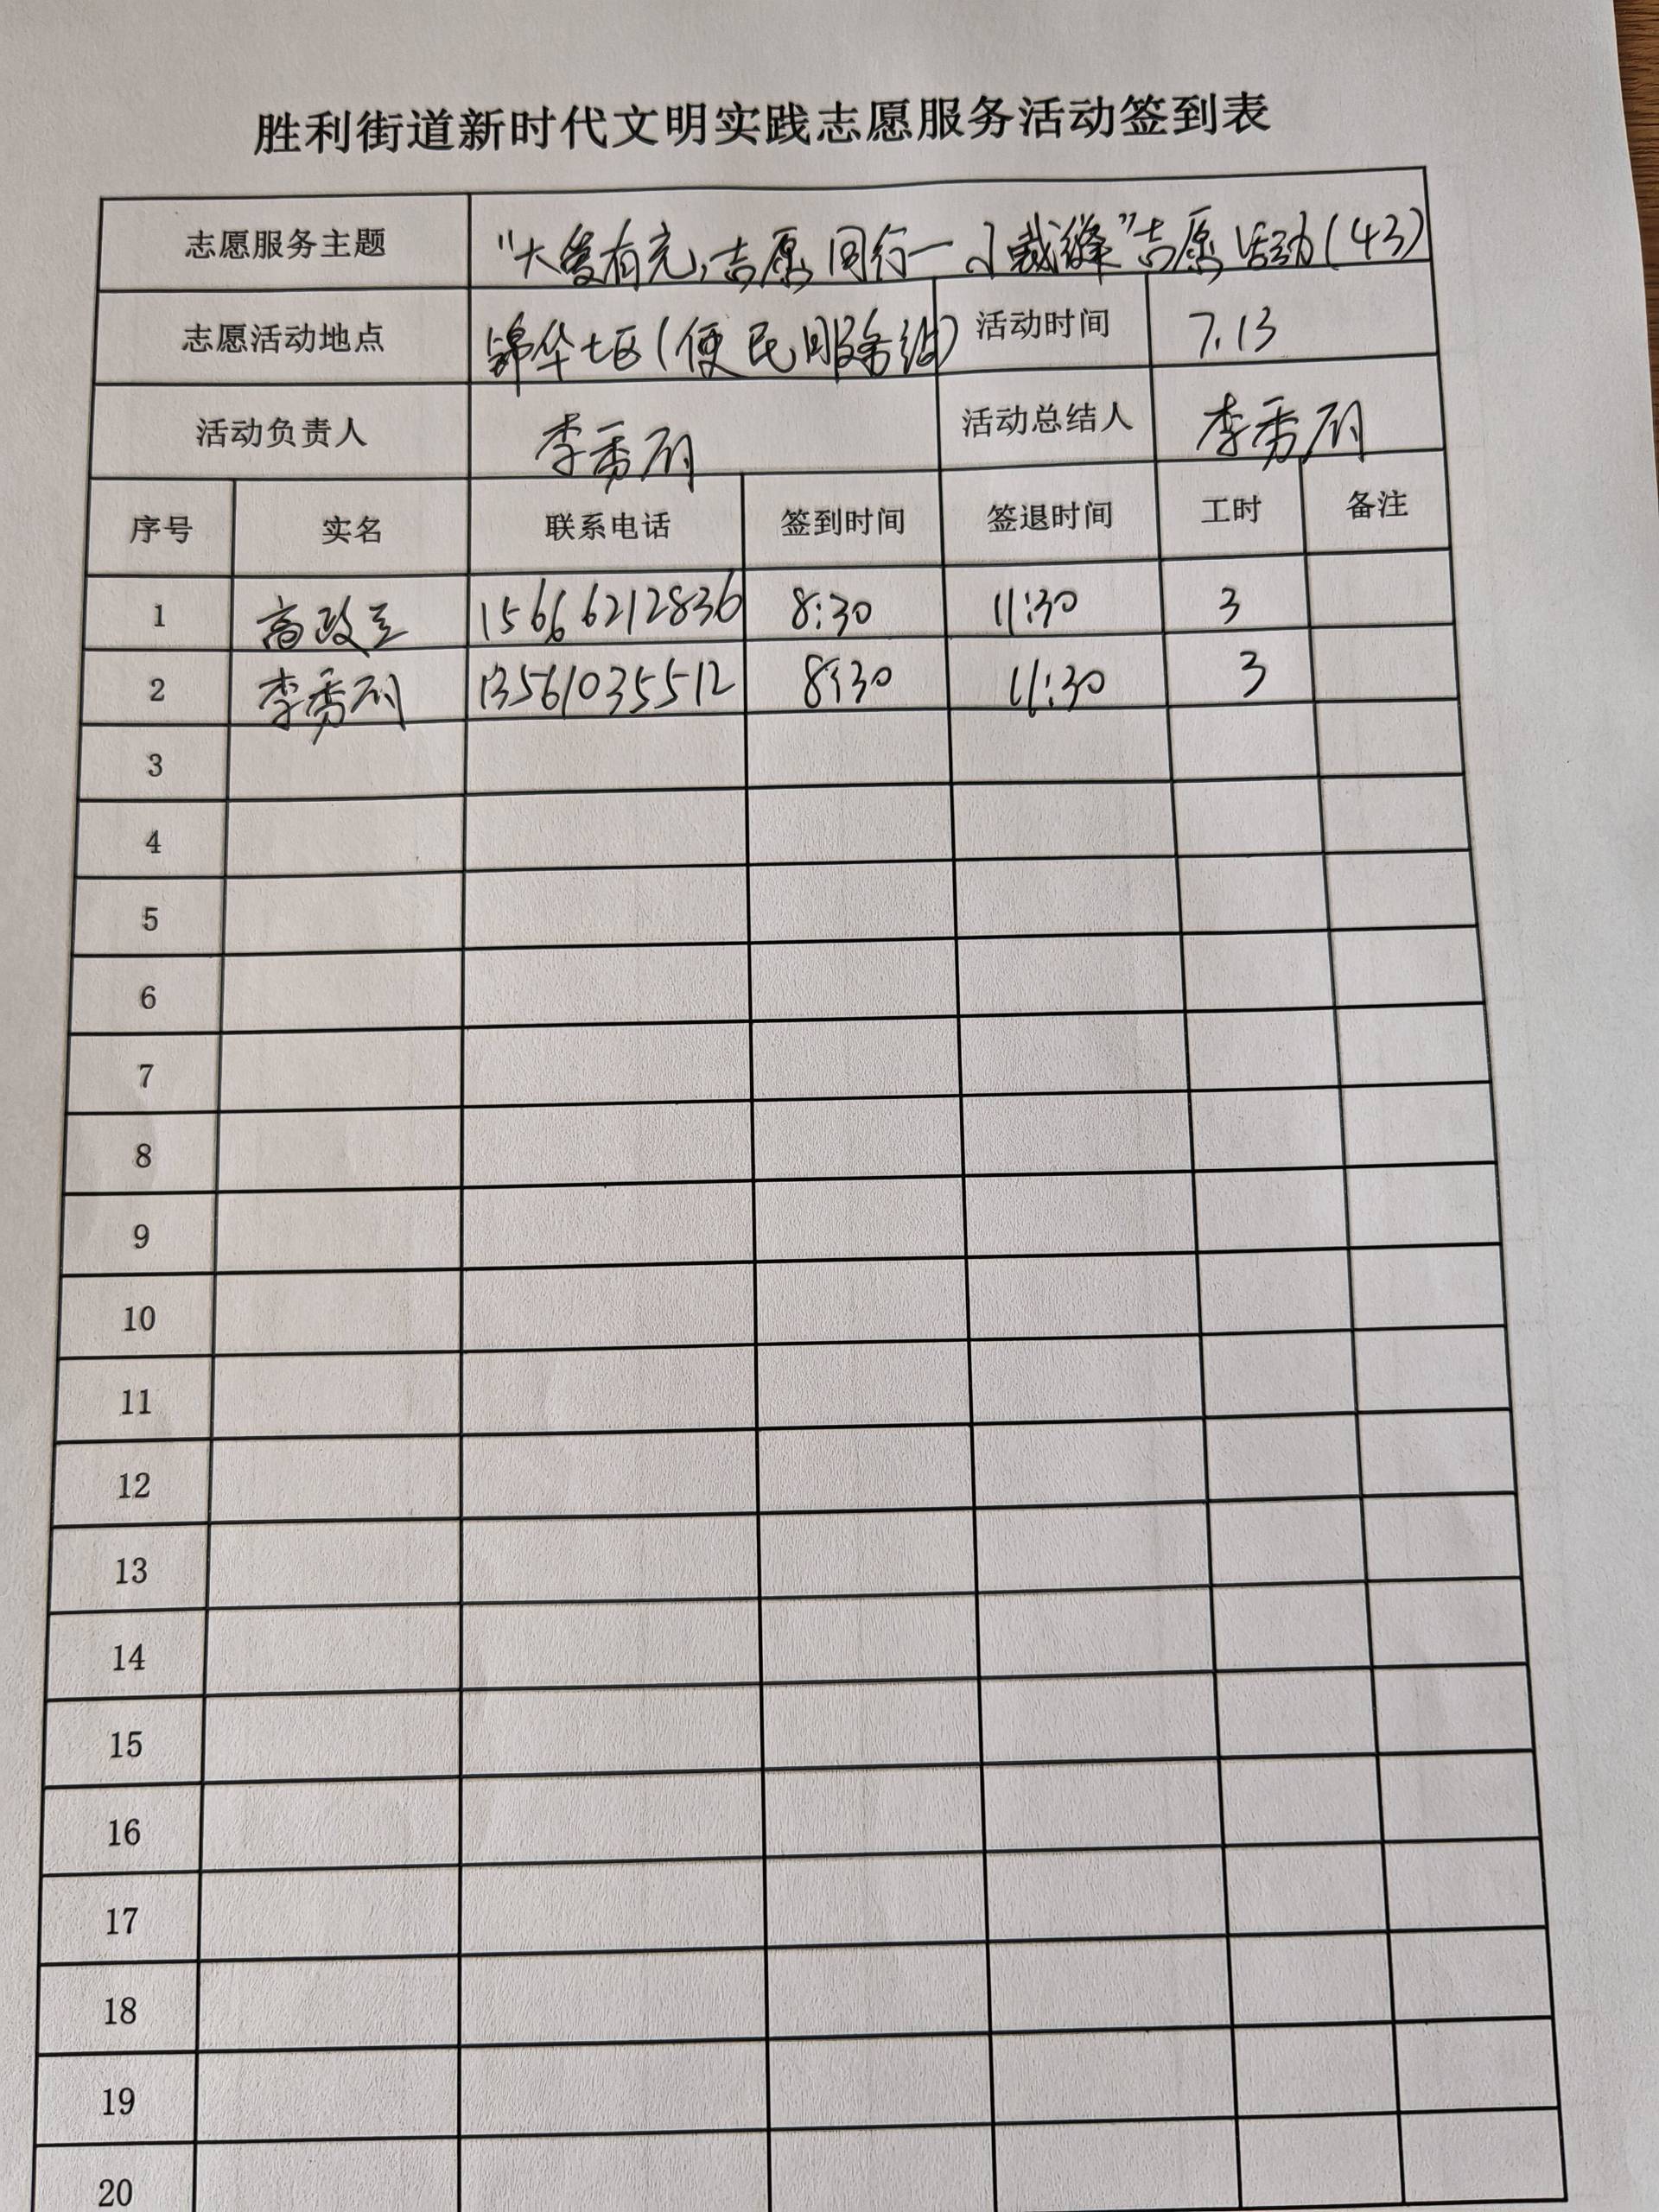 胜利街道新时代文明实践志愿服务活动签到表
志愿服务主题 “大爱有充,志愿同行一小裁缝”志愿活动(43)
志愿活动地点 锦华七区(便民服务站) 活动时间 7.13
活动负责人 李秀 活动总结人 李秀
序号 实名 联系电话 签到时间 签退时间 工时 备注
1 高政 15666212836 8:30 11:30 3
2 李秀 13561035512 8:30 11:30 3
3
4
5
6
7
8
9
10
11
12
13
14
15
16
17
18
19
20